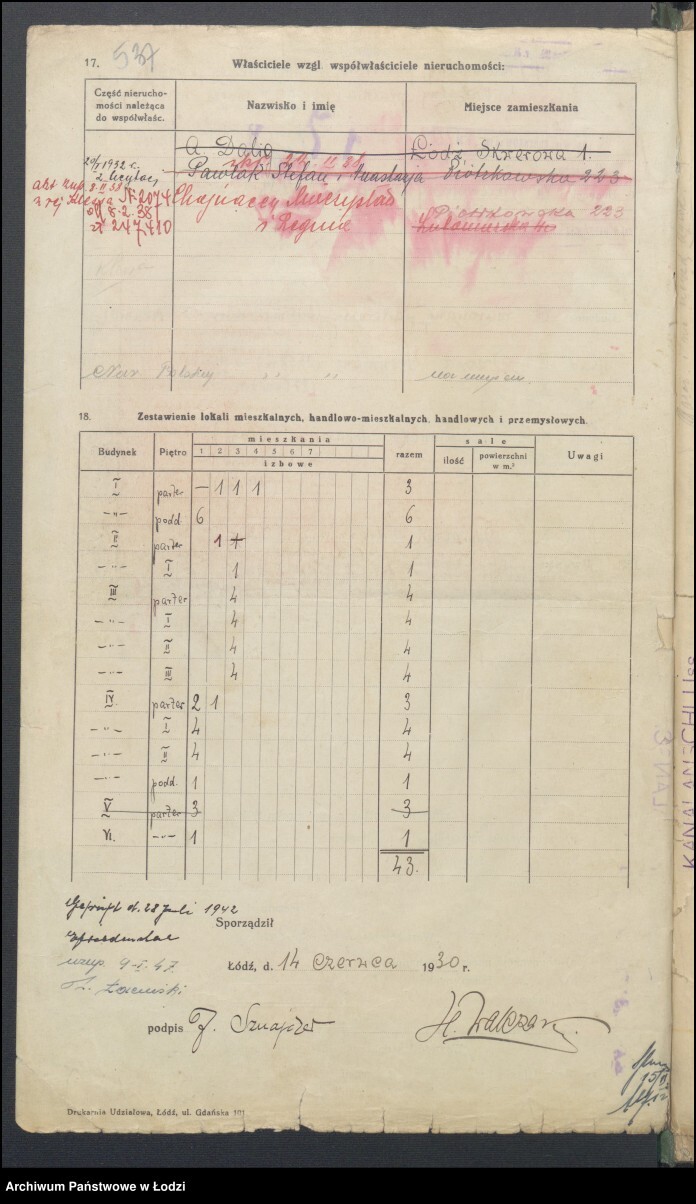 17. 537 Właściciele wzgl. współwłaściciele nieruchomości:
Część nierucho-
mości należąca
do współwłaśc.
Nazwisko i imię
Miejsce zamieszkania
Łódź Skwerowa 1.
1932 r.
z licytacji
Pawlak Stefan i Anastazja Piotrkowska 223
№ 2074
8.2.38
247.410
i Regina
Piotrkowska 223
18. Zestawienie lokali mieszkalnych, handlowo-mieszkalnych, handlowych i przemysłowych.
Budynek Piętro mieszkania razem sale Uwagi
1 2 3 4 5 6 7
izbowe
ilość powierzchni w m.²
I parter — 1 1 1 3
-"- podd. 6 6
II parter 1 + 1
-"- I 1 1
III parter 4 4
-"- I 4 4
-"- II 4 4
-"- III 4 4
IV. parter 2 1 3
-"- I 4 4
-"- II 4 4
-"- podd. 1 1
V parter 3 3
VI. -"- 1 1
43.
Geprüft d. 28 Juli 1942
Sporządził
uzup. 9-I.47
Łódź, d. 14 czerwca 1930 r.
podpis
Drukarnia Udziałowa, Łódź, ul. Gdańska 101
Archiwum Państwowe w Łodzi